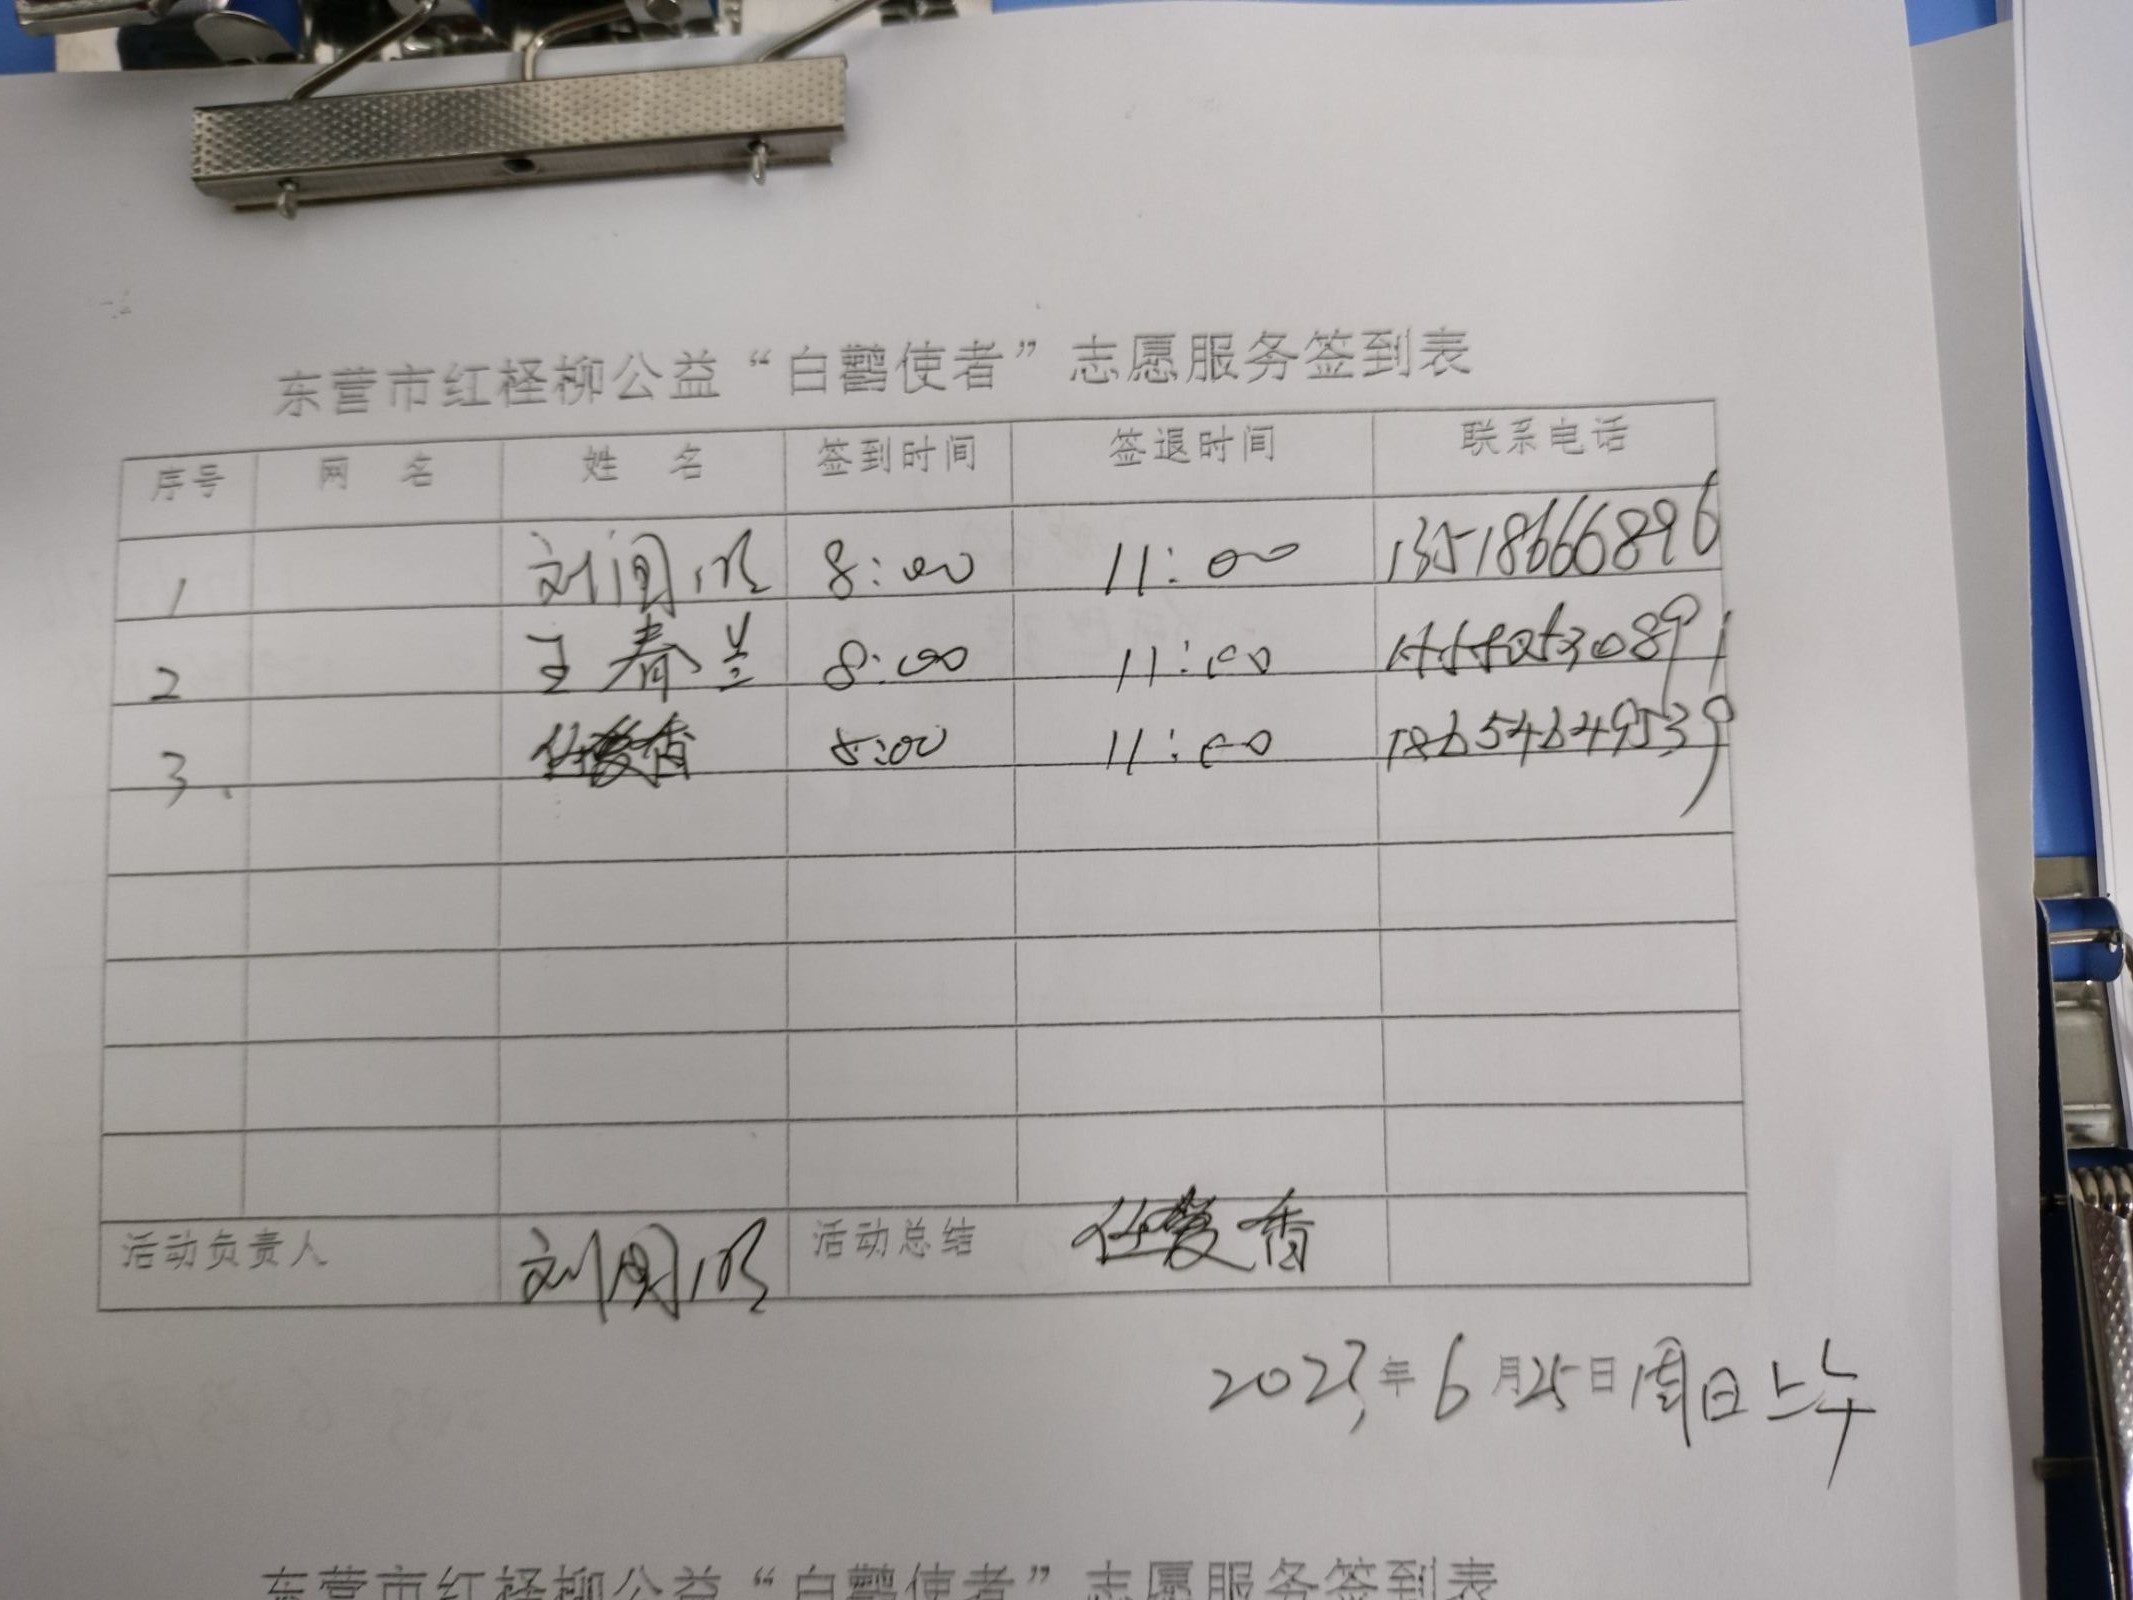 东营市红柽柳公益“白鹳使者”志愿服务签到表
序号 网 名 姓 名 签到时间 签退时间 联系电话
1 8:00 11:00 13518666896
2 王春兰 8:00 11:00
3. 香 8:00 11:00 18654649539
活动负责人 活动总结 香
2023年6月25日周日上午
东营市红柽柳公益“白鹳使者”志愿服务签到表